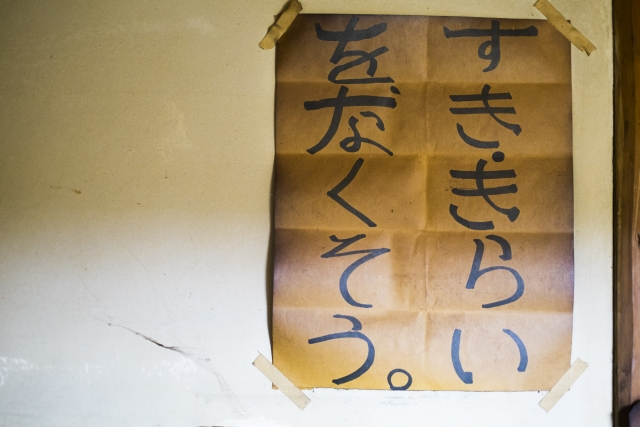 すき・きらい
をなくそう。